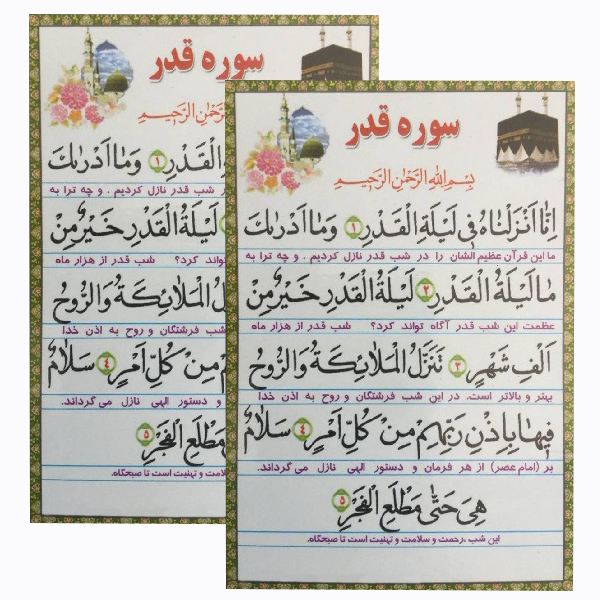 سوره قدر
بِسْمِ اللهِ الرَّحْمٰنِ الرَّحِيمِ
اِنّٰا اَنْزَلْنٰاهُ فِي لَيْلَةِ الْقَدْرِ ١ وَمٰا اَدْرٰىكَ
ما این قرآن عظیم الشان را در شب قدر نازل کردیم . و چه ترا به
مٰا لَيْلَةُ الْقَدْرِ ٢ لَيْلَةُ الْقَدْرِ خَيْرٌ مِنْ
عظمت این شب قدر آگاه تواند کرد؟ شب قدر از هزار ماه
اَلْفِ شَهْرٍ ٣ تَنَزَّلُ الْمَلٰائِكَةُ وَالرُّوحُ
بهتر و بالاتر است. در این شب فرشتگان و روح به اذن خدا
فِيهٰا بِاِذْنِ رَبِّهِمْ مِنْ كُلِّ اَمْرٍ ٤ سَلٰامٌ
بر (امام عصر) از هر فرمان و دستور الهی نازل می گرداند.
هِيَ حَتّٰى مَطْلَعِ الْفَجْرِ ٥
این شب ،رحمت و سلامت و تهنیت است تا صبحگاه.
سوره قدر
الرَّحْمٰنِ الرَّحِيمِ
الْقَدْرِ ١ وَمٰا اَدْرٰىكَ
شب قدر نازل کردیم . و چه ترا به
لَيْلَةُ الْقَدْرِ خَيْرٌ مِنْ
تواند کرد؟ شب قدر از هزار ماه
الْمَلٰائِكَةُ وَالرُّوحُ
شب فرشتگان و روح به اذن خدا
مِنْ كُلِّ اَمْرٍ ٤ سَلٰامٌ
و دستور الهی نازل می گرداند.
مَطْلَعِ الْفَجْرِ ٥
و تهنیت است تا صبحگاه.